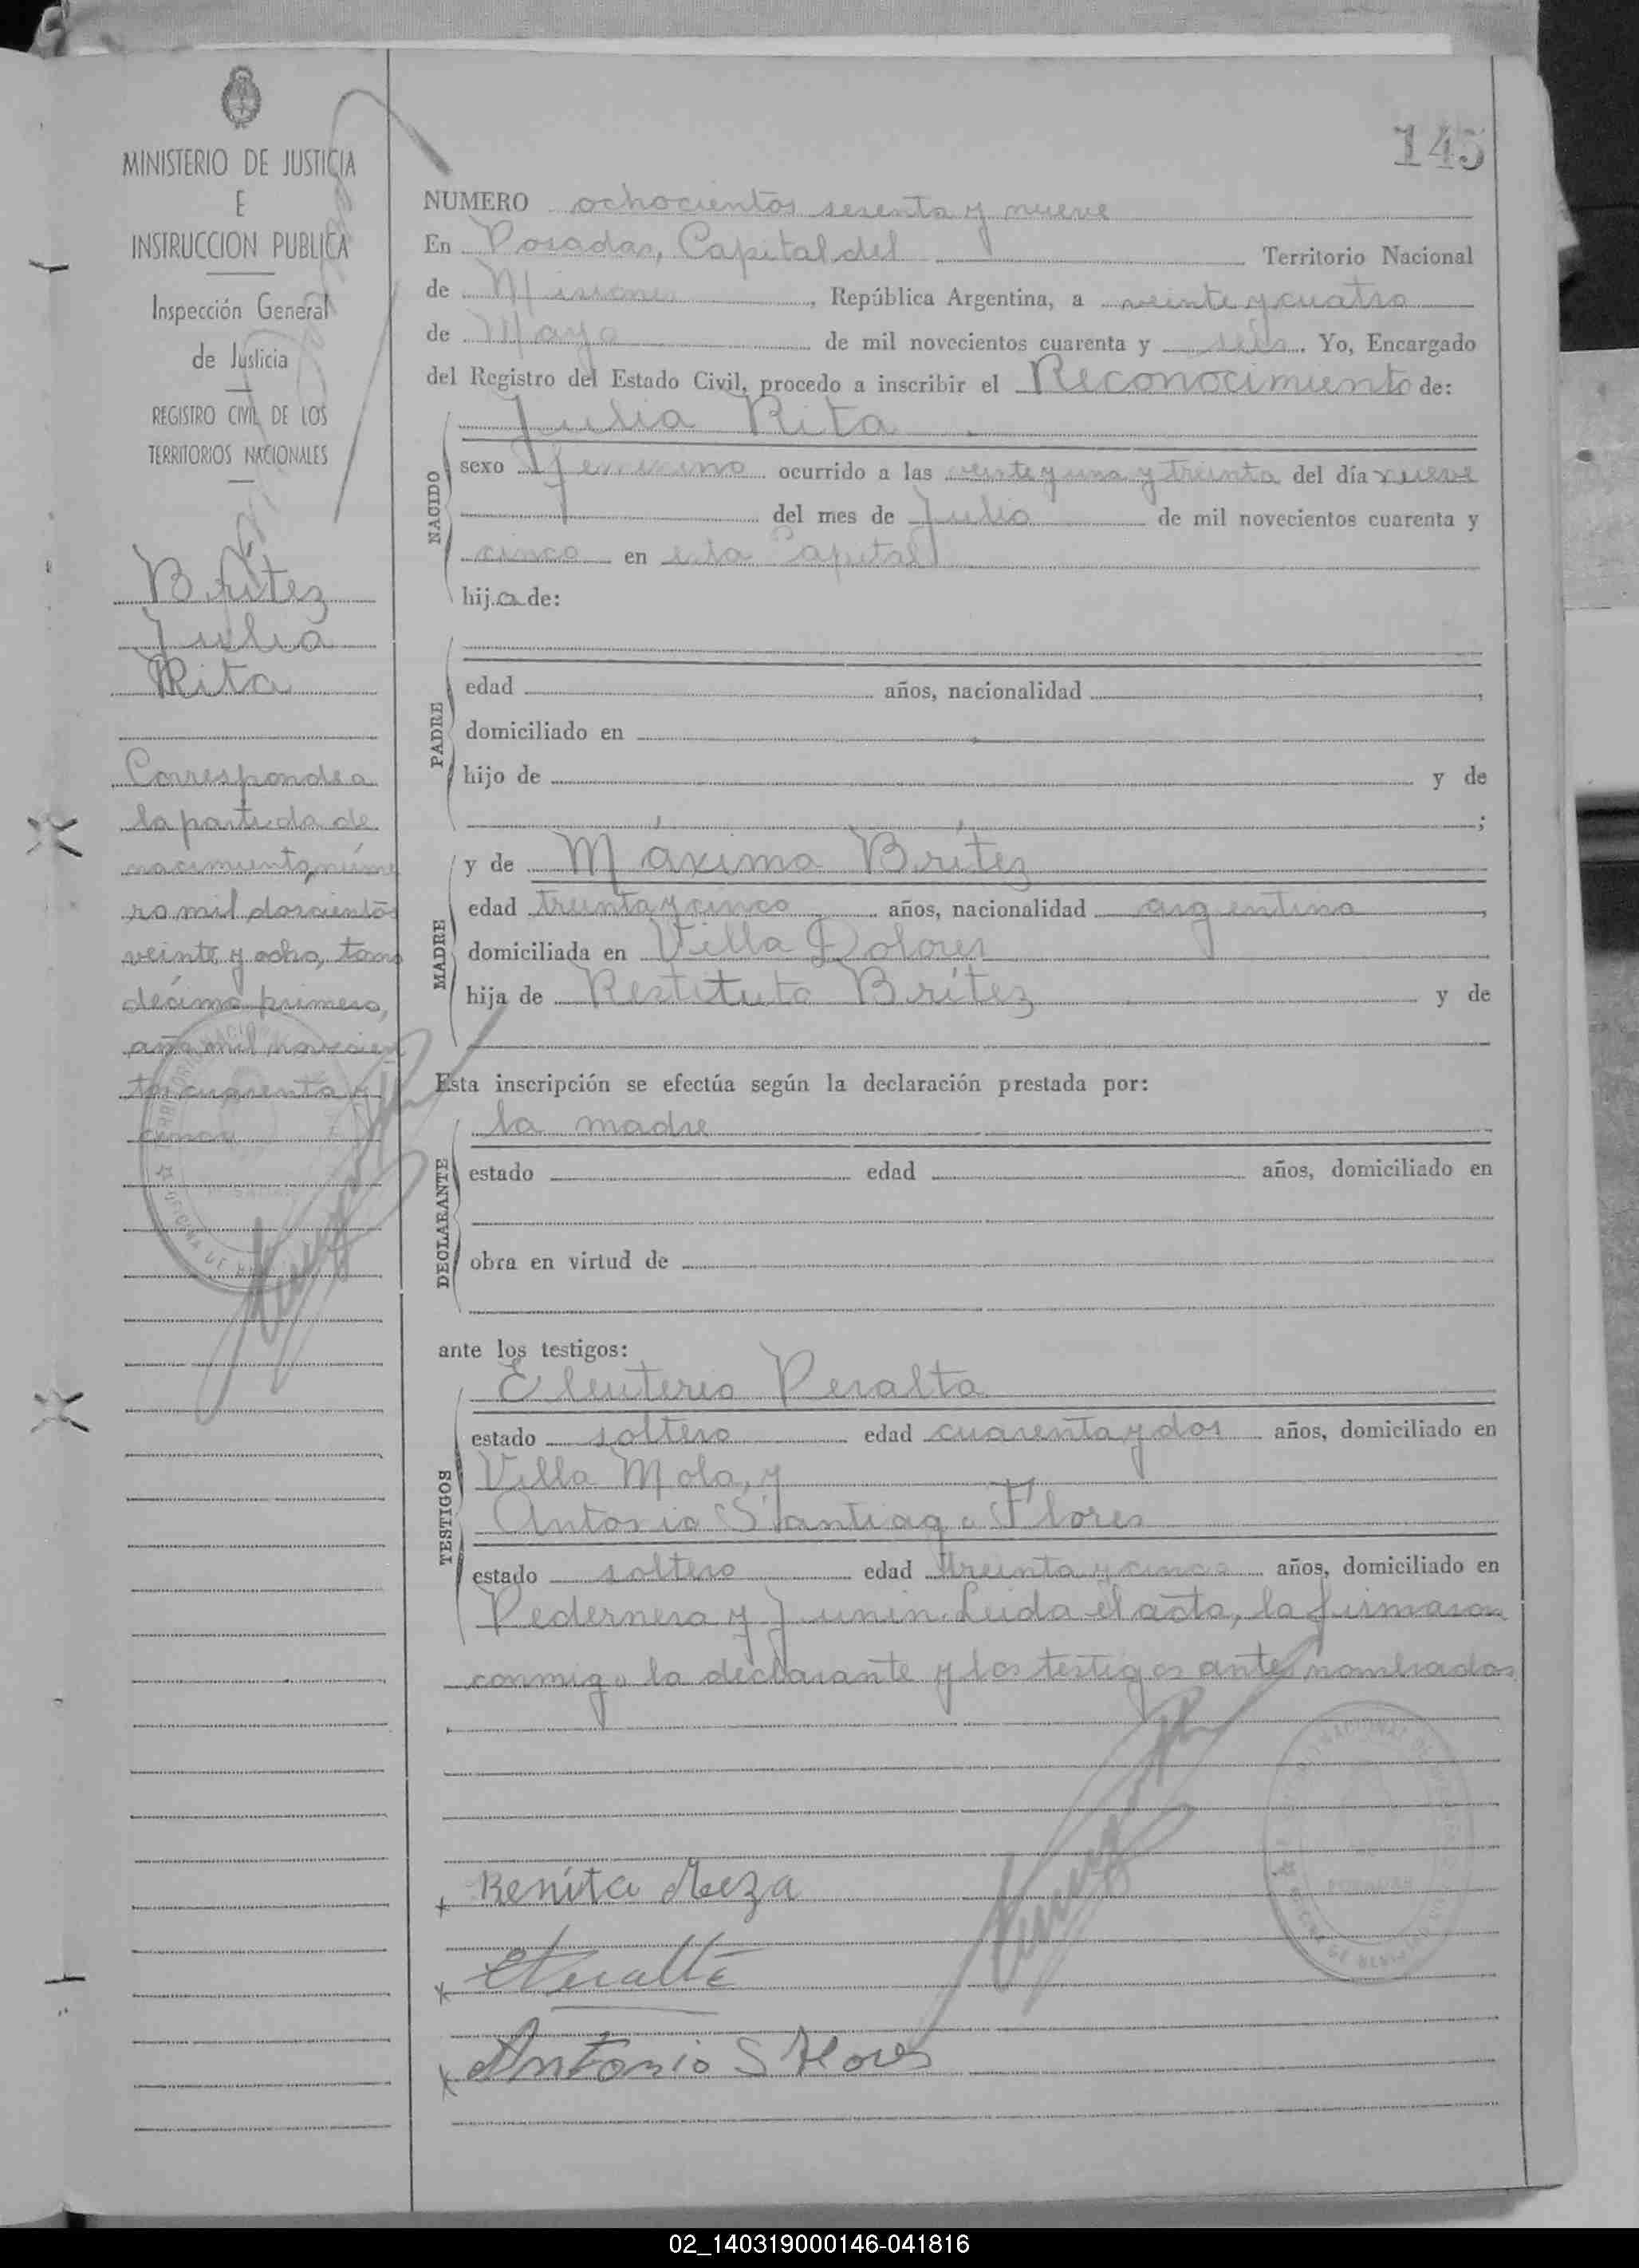 145
MINISTERIO DE JUSTICIA
E
INSTRUCCION PUBLICA
Inspección General
de Justicia
REGISTRO CIVIL DE LOS
TERRITORIOS NACIONALES
Brítez
Julia
Rita
Corresponde a
la partida de
nacimiento, núme
ro mil doscientos
veinte y ocho, tomo
décimo primero,
año mil novecien
tos cuarenta y
cinco
NUMERO ochocientos sesenta y nueve
En Posadas, Capital del Territorio Nacional
de Misiones, República Argentina, a veinte y cuatro
de Mayo de mil novecientos cuarenta y seis. Yo, Encargado
del Registro del Estado Civil, procedo a inscribir el Reconocimiento de:
NACIDO
Julia Rita
sexo femenino ocurrido a las veinte y una y treinta del día nueve
del mes de Julio de mil novecientos cuarenta y
cinco en esta Capital
hija de:
PADRE
edad años, nacionalidad ,
domiciliado en
hijo de y de
;
MADRE
y de Máxima Brítez
edad treinta y cinco años, nacionalidad argentina,
domiciliada en Villa Dolores
hija de Restituta Brítez y de
Esta inscripción se efectúa según la declaración prestada por:
DECLARANTE
la madre
estado edad años, domiciliado en
obra en virtud de
ante los testigos:
TESTIGOS
Eleuterio Peralta
estado soltero edad cuarenta y dos años, domiciliado en
Villa Mola, y
Antonio Santiago Flores
estado soltero edad treinta y cinco años, domiciliado en
Pedernera y Junin. Leida el acta, la firmaron
conmigo la declarante y los testigos antes nombrados
Benita Meza
EPeralta
Antonio S Flores
02_140319000146-041816